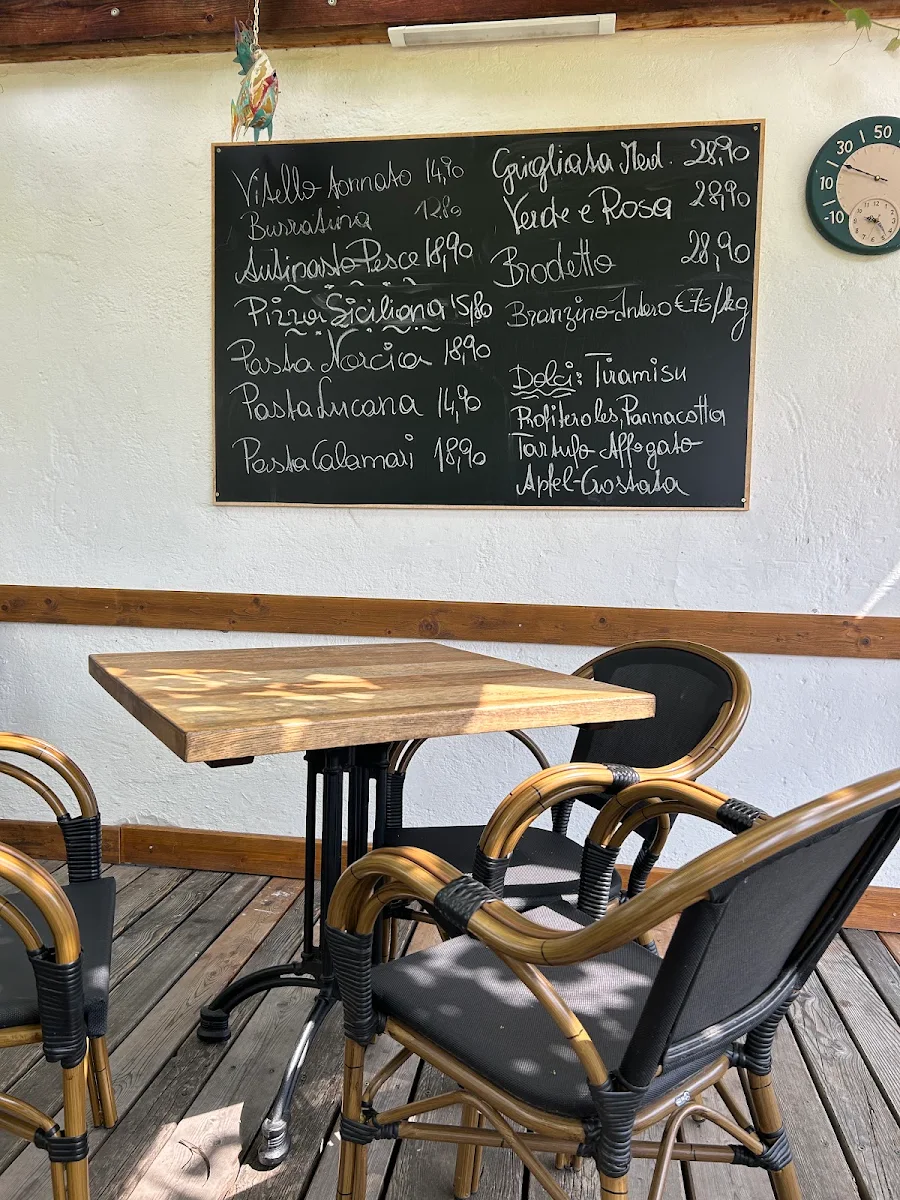 Vitello tonnato 14,90
Burratina 12,80
Antipasto Pesce 18,90
Pizza Siciliana 15,80
Pasta Norcia 18,90
Pasta Lucana 14,90
Pasta Calamari 18,90
Grigliata Med. 28,90
Verde e Rosa 28,90
Brodetto 28,90
Branzino-Intero €75/kg
Dolci: Tiramisu
Profiteroles, Pannacotta
Tartufo Affogato
Apfel-Crostata
50
30
10
-10